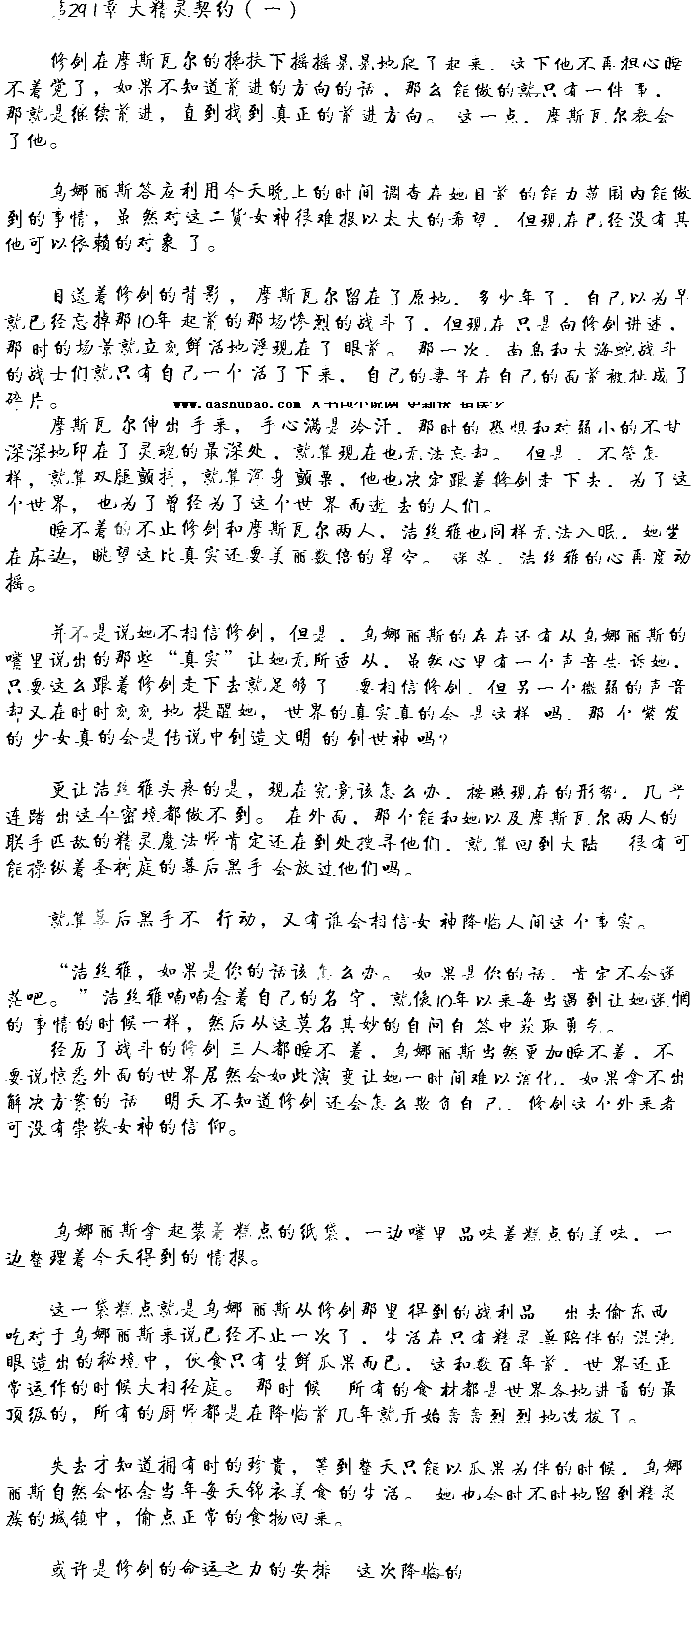 第291章 大精灵契约（一）
修剑在摩斯瓦尔的搀扶下摇摇晃晃地爬了起来．这下他不再担心睡
不着觉了，如果不知道前进的方向的话．那么 能做的就只有一件事．
那就是继续前进，直到找到真正的前进方向。 这一点．摩斯瓦尔教会
了他。
乌娜丽斯答应利用今天晚上的时间调查在她目前的能力范围内能做
到的事情，虽然对这二货女神很难报以太大的希望．但现在已经没有其
他可以依赖的对象了。
目送着修剑的背影，摩斯瓦尔留在了原地．多少年了．自己以为早
就已经忘掉那10年起前的那场惨烈的战斗了．但现在只是向修剑讲述．
那时的场景就立刻鲜活地浮现在了眼前。 那一次．南岛和大海蛇战斗
的战士们就只有自己一个活了下来．自己的妻子在自己的面前被扯成了
碎片。
摩斯瓦尔伸出手来，手心满是冷汗．那时的恐惧和对弱小的不甘
深深地印在了灵魂的最深处．就算现在也无法忘却。 但是．不管怎
样，就算双腿颤抖，就算浑身颤栗．他也决定跟着修剑走下去．为了这
个世界，也为了曾经为了这个世界而逝去的人们。
睡不着的不止修剑和摩斯瓦尔两人．洁丝雅也同样无法入眠．她坐
在床边，眺望这比真实还要美丽数倍的星空。 迷茫．洁丝雅的心再度动
摇。
并不是说她不相信修剑，但是．乌娜丽斯的存在还有从乌娜丽斯的
嘴里说出的那些“真实”让她无所适从．虽然心里有一个声音告诉她．
只要这么跟着修剑走下去就足够了 要相信修剑．但另一个微弱的声音
却又在时时刻刻地提醒她，世界的真实真的会是这样吗．那个紫发
的少女真的会是传说中创造文明的创世神吗？
更让洁丝雅头疼的是，现在究竟该怎么办．按照现在的形势．几乎
连踏出这个密境都做不到。 在外面．那个能和她以及摩斯瓦尔两人的
联手匹敌的精灵魔法师肯定还在到处搜寻他们．就算回到大陆 很有可
能操纵着圣树庭的幕后黑手会放过他们吗。
就算幕后黑手不 行动，又有谁会相信女神降临人间这个事实。
“洁丝雅，如果是你的话该怎么办。 如果是你的话．肯定不会迷
茫吧。”洁丝雅喃喃念着自己的名字．就像10年以来每当遇到让她迷惘
的事情的时候一样，然后从这莫名其妙的自问自答中获取勇气。
经历了战斗的修剑三人都睡不着．乌娜丽斯当然更加睡不着．不
要说惊悉外面的世界居然会如此演变让她一时间难以消化．如果拿不出
解决方案的话 明天不知道修剑还会怎么欺负自己．修剑这个外来者
可没有崇敬女神的信仰。
乌娜丽斯拿起装着糕点的纸袋．一边嘴里品味着糕点的美味．一
边整理着今天得到的情报。
这一袋糕点就是乌娜丽斯从修剑那里得到的战利品 出去偷东西
吃对于乌娜丽斯来说已经不止一次了．生活在只有精灵兽陪伴的混沌
眼造出的秘境中，饮食只有生鲜瓜果而已．这和数百年前．世界还正
常运作的时候大相径庭。 那时候 所有的食材都是世界各地进贡的最
顶级的，所有的厨师都是在降临前几年就开始轰轰烈烈地选拔了。
失去才知道拥有时的珍贵，等到整天只能以瓜果为伴的时候．乌娜
丽斯自然会怀念当年每天锦衣美食的生活。 她也会时不时地留到精灵
族的城镇中，偷点正常的食物回来。
或许是修剑的命运之力的安排 这次降临的